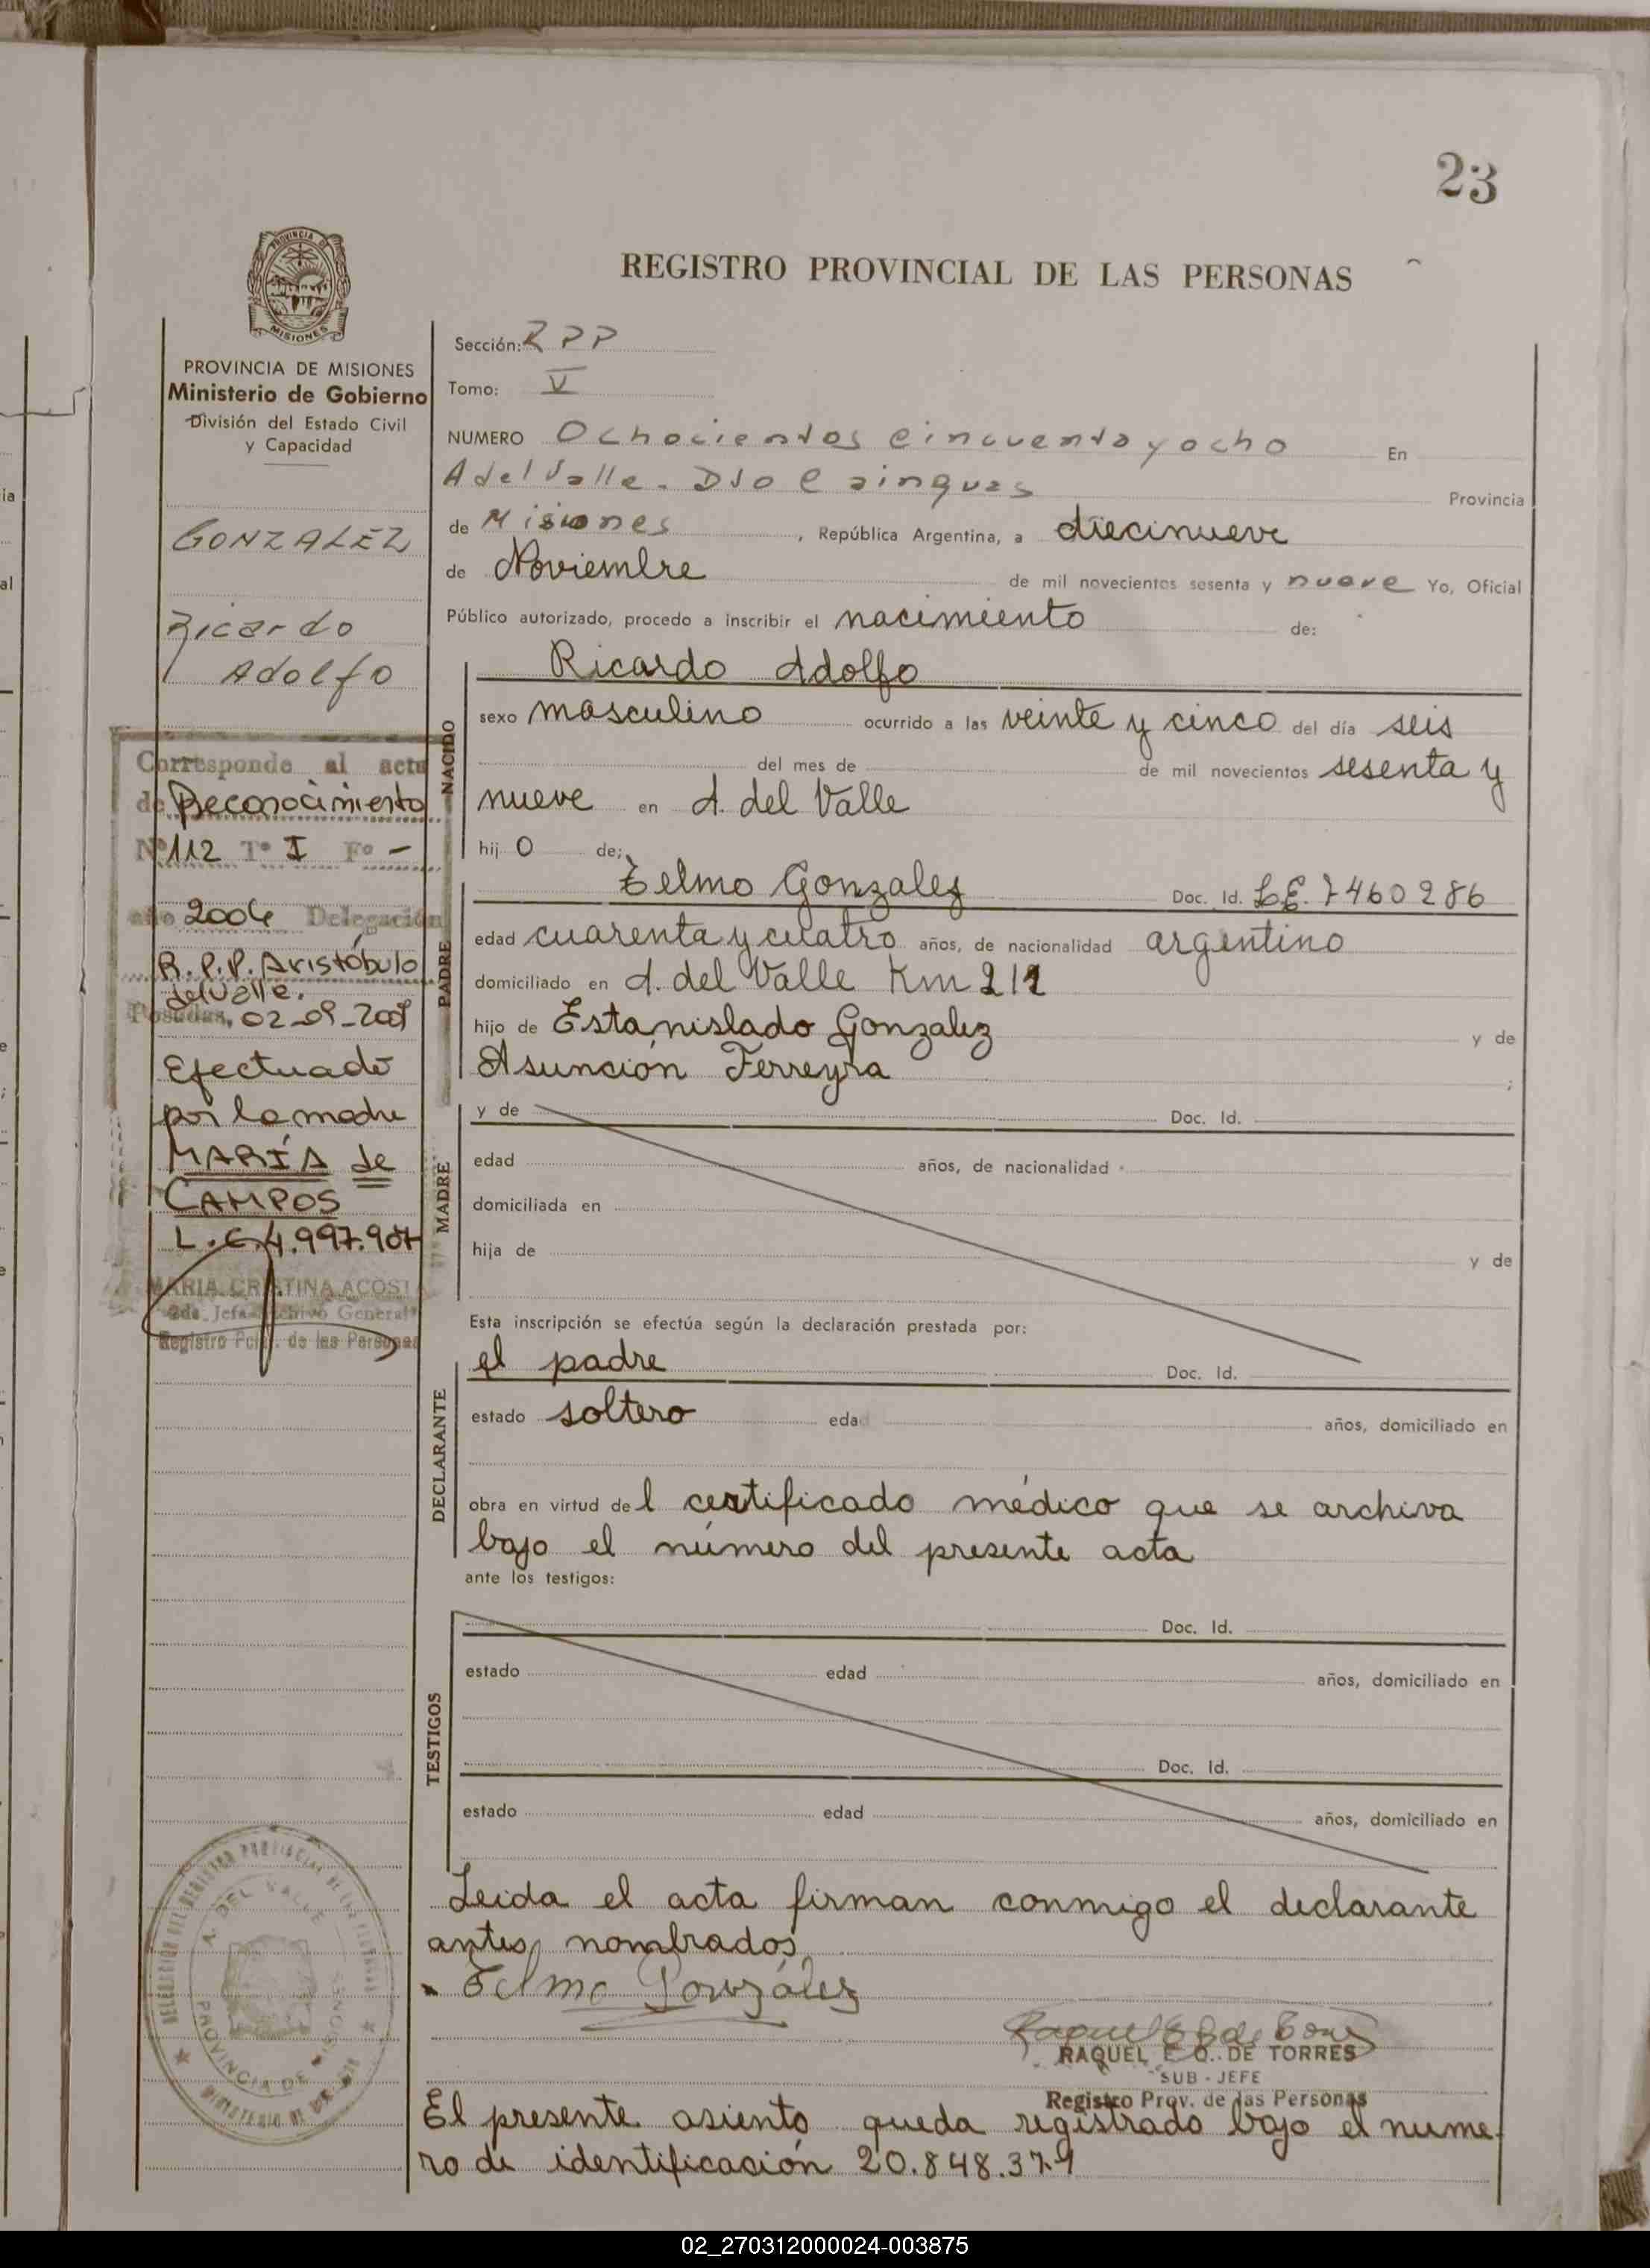 23
REGISTRO PROVINCIAL DE LAS PERSONAS
PROVINCIA DE
MISIONES
PROVINCIA DE MISIONES
Ministerio de Gobierno
División del Estado Civil
y Capacidad
GONZALEZ
Ricardo
Adolfo
Corresponde al acta
de Reconocimiento
Nº 112 Tº I Fº -
año 2004 Delegación
R.P.P. Aristóbulo
del Valle.
Posadas, 02-09-2004
Efectuado
por la madre
MARÍA de
CAMPOS
L.C. 4.997.907
MARIA CRISTINA ACOSTA
2da. Jefa Archivo General
Registro Pcial. de las Personas
Sección: RPP
Tomo: V
NUMERO Ochocientos cincuenta y ocho En
A del Valle - Dto Cainguas Provincia
de Misiones, República Argentina, a diecinueve
de Noviembre de mil novecientos sesenta y nueve Yo, Oficial
Público autorizado, procedo a inscribir el nacimiento de:
NACIDO
Ricardo Adolfo
sexo masculino ocurrido a las veinte y cinco del día seis
del mes de de mil novecientos sesenta y
nueve en A. del Valle
hijo de;
PADRE
Telmo Gonzalez Doc. Id. L.E. 7460286
edad cuarenta y cuatro años, de nacionalidad argentino
domiciliado en A. del Valle Km 212
hijo de Estanislado Gonzalez y de
Asunción Ferreyra ;
MADRE
y de Doc. Id.
edad años, de nacionalidad
domiciliada en
hija de y de
Esta inscripción se efectúa según la declaración prestada por:
DECLARANTE
el padre Doc. Id.
estado soltero edad años, domiciliado en
obra en virtud del certificado médico que se archiva
bajo el número del presente acta
ante los testigos:
TESTIGOS
Doc. Id.
estado edad años, domiciliado en
Doc. Id.
estado edad años, domiciliado en
Leida el acta firman conmigo el declarante
antes nombrados
Telmo González
RAQUEL E. Q. DE TORRES
SUB - JEFE
Registro Prov. de las Personas
El presente asiento queda registrado bajo el nume-
ro de identificación 20.848.379
DELEGACION DEL REGISTRO PROVINCIAL DE LAS PERSONAS
A. DEL VALLE
PROVINCIA DE MISIONES
02_270312000024-003875